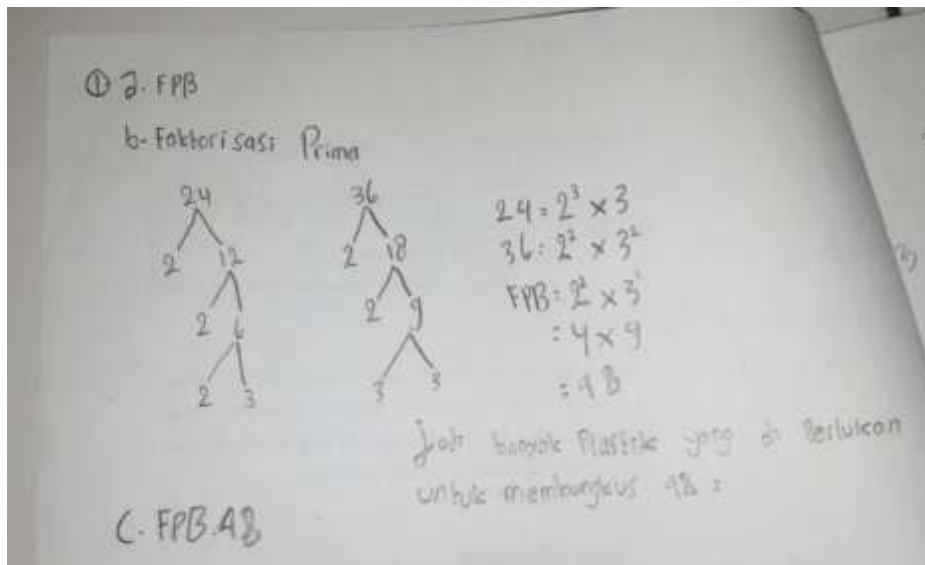 ① a. FPB
b. Faktorisasi Prima
24
2 12
2 6
2 3
36
2 18
2 9
3 3
24 = 2³ × 3
36 = 2² × 3²
FPB = 2² × 3
= 4 × 9
= 48
Jadi banyak Plastik yang di Perlukan
untuk membungkus 48 =
C. FPB. 48